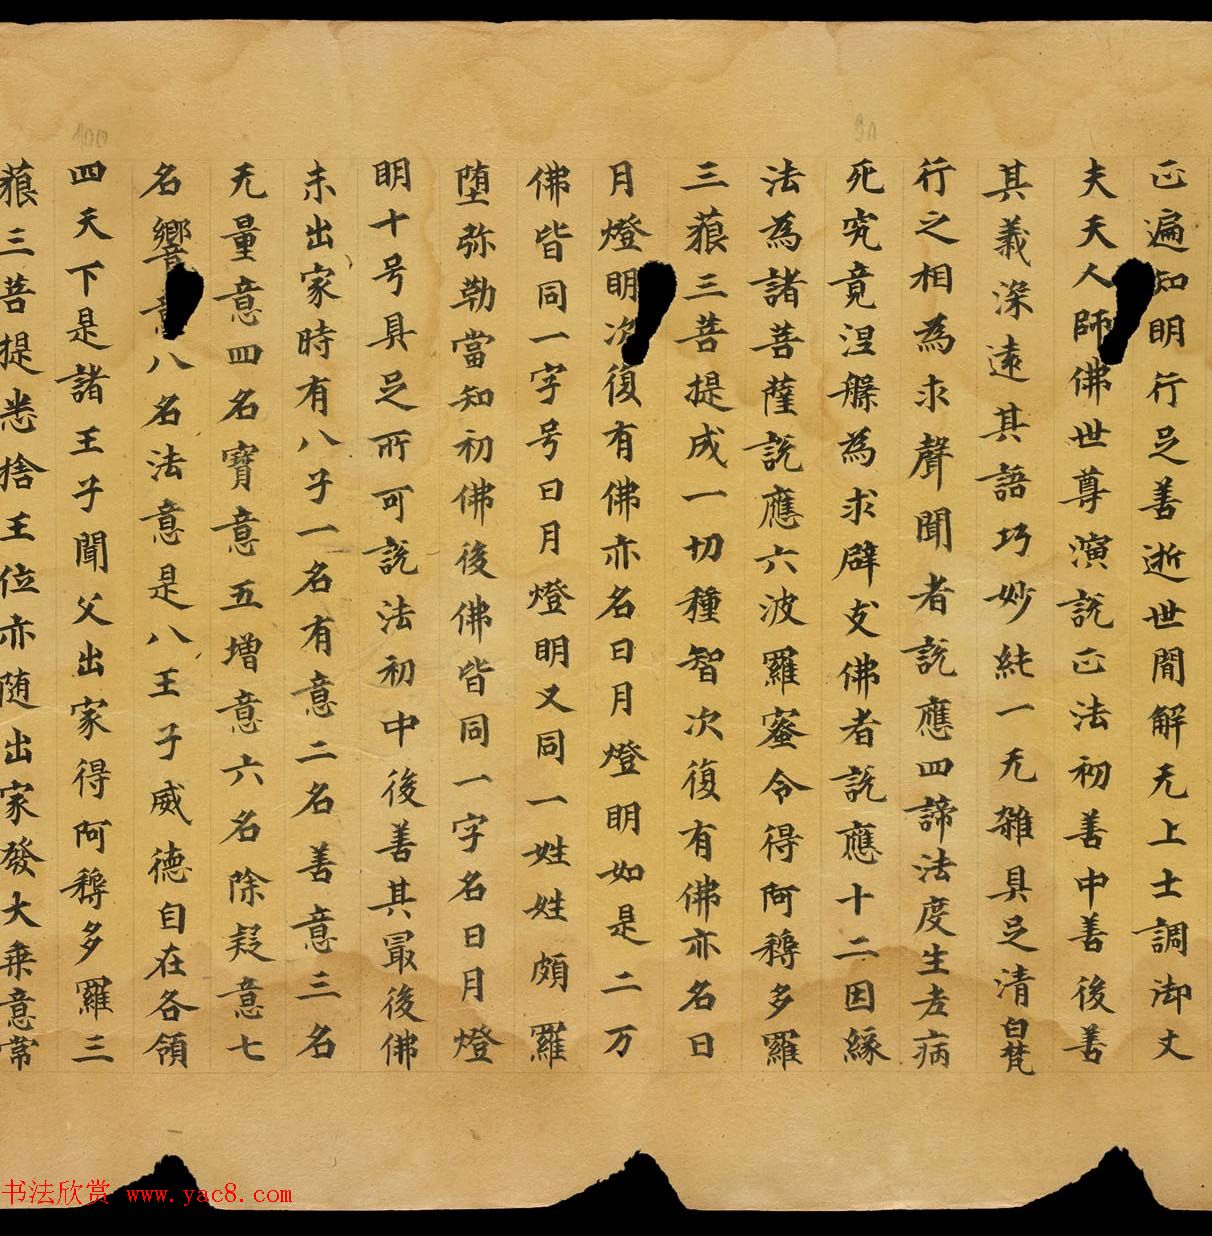 正遍知明行足善逝世間解无上士調御丈
夫天人師佛世尊演說正法初善中善後善
其義深遠其語巧妙純一无雜具足清白梵
行之相為求聲聞者說應四諦法度生老病
死究竟涅槃為求辟支佛者說應十二因緣
法為諸菩薩說應六波羅蜜令得阿耨多羅
三藐三菩提成一切種智次復有佛亦名日
月燈明次復有佛亦名日月燈明如是二万
佛皆同一字号日月燈明又同一姓姓頗羅
堕弥勒當知初佛後佛皆同一字名日月燈
明十号具足所可說法初中後善其最後佛
未出家時有八子一名有意二名善意三名
无量意四名寶意五增意六名除疑意七
名響意八名法意是八王子威德自在各領
四天下是諸王子聞父出家得阿耨多羅三
藐三菩提悉捨王位亦随出家發大乗意常
100
90
书法欣赏 www.yac8.com